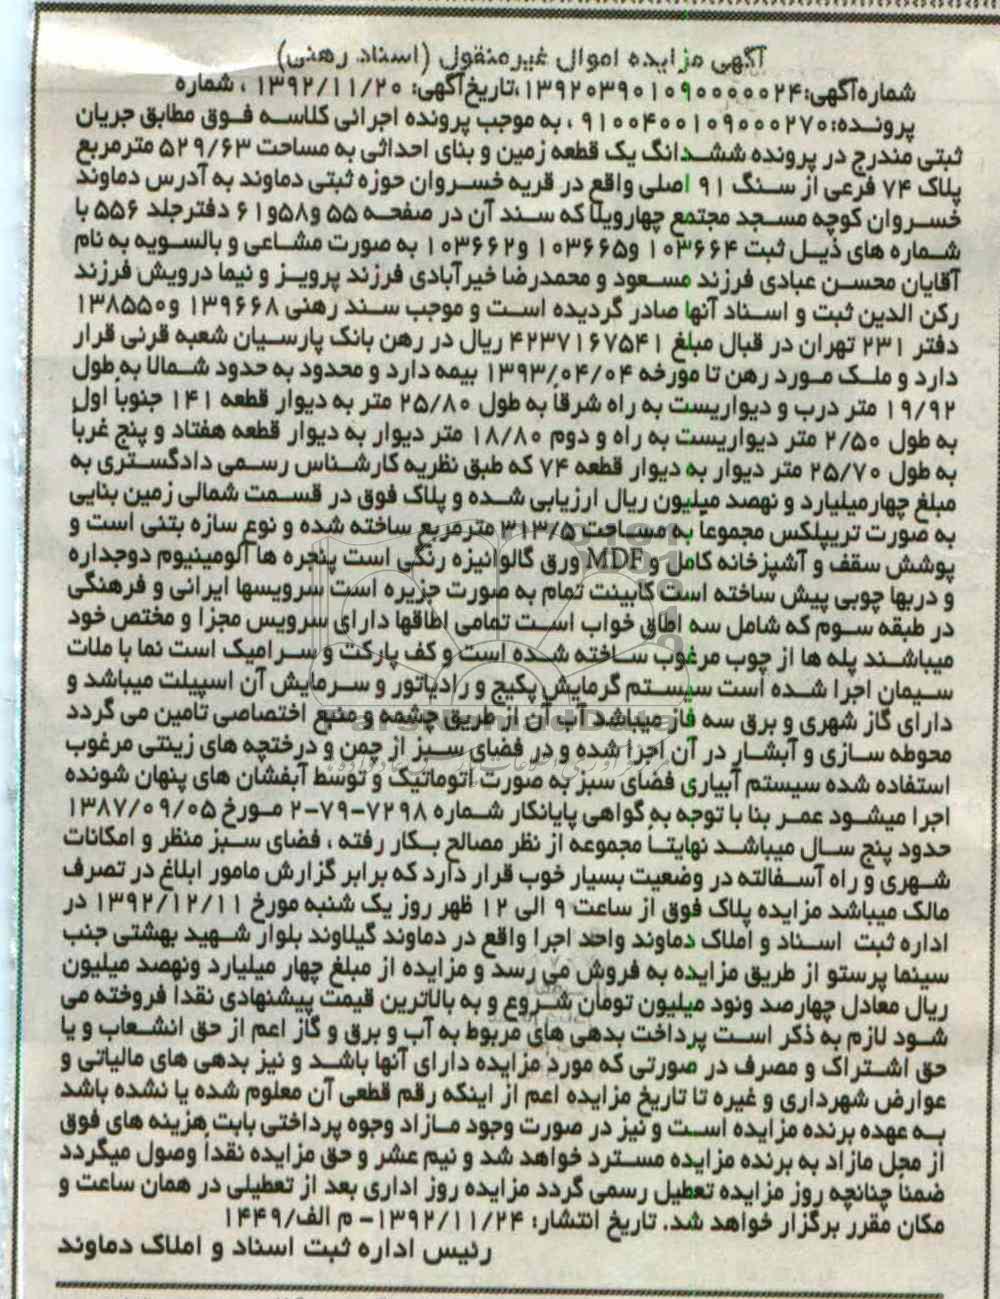 آگهی مزایده اموال غیرمنقول (اسناد رهنی)
شماره آگهی: ۱۳۹۲۰۳۹۰۱۰۹۰۰۰۰۰۲۴،تاریخ آگهی: ۱۳۹۲/۱۱/۲۰ ، شماره
پرونده: ۹۱۰۰۴۰۰۱۰۹۰۰۰۲۷۰ ، به موجب پرونده اجرائی کلاسه فوق مطابق جریان
ثبتی مندرج در پرونده ششدانگ یک قطعه زمین و بنای احداثی به مساحت ۵۲۹/۶۳ مترمربع
پلاک ۷۴ فرعی از سنگ ۹۱ اصلی واقع در قریه خسروان حوزه ثبتی دماوند به آدرس دماوند
خسروان کوچه مسجد مجتمع چهارویلا که سند آن در صفحه ۵۵ و۵۸و۶۱ دفترجلد ۵۵۶ با
شماره های ذیل ثبت ۱۰۳۶۶۴ و۱۰۳۶۶۵ و۱۰۳۶۶۲ به صورت مشاعی و بالسویه به نام
آقایان محسن عبادی فرزند مسعود و محمدرضا خیرآبادی فرزند پرویز و نیما درویش فرزند
رکن الدین ثبت و اسناد آنها صادر گردیده است و موجب سند رهنی ۱۳۹۶۶۸ و۱۳۸۵۵۰
دفتر ۲۳۱ تهران در قبال مبلغ ۴۲۳۷۱۶۷۵۴۱ ریال در رهن بانک پارسیان شعبه قرنی قرار
دارد و ملک مورد رهن تا مورخه ۱۳۹۳/۰۴/۰۴ بیمه دارد و محدود به حدود شمالا به طول
۱۹/۹۲ متر درب و دیواریست به راه شرقاً به طول ۲۵/۸۰ متر به دیوار قطعه ۱۴۱ جنوباً اول
به طول ۲/۵۰ متر دیواریست به راه و دوم ۱۸/۸۰ متر دیوار به دیوار قطعه هفتاد و پنج غرباً
به طول ۲۵/۷۰ متر دیوار به دیوار قطعه ۷۴ که طبق نظریه کارشناس رسمی دادگستری به
مبلغ چهارمیلیارد و نهصد میلیون ریال ارزیابی شده و پلاک فوق در قسمت شمالی زمین بنایی
به صورت تریپلکس مجموعاً به مساحت ۳۱۳/۵ مترمربع ساخته شده و نوع سازه بتنی است و
پوشش سقف و آشپزخانه کامل و MDF ورق گالوانیزه رنگی است پنجره ها آلومینیوم دوجداره
و دربها چوبی پیش ساخته است کابینت تمام به صورت جزیره است سرویسها ایرانی و فرهنگی
در طبقه سوم که شامل سه اطاق خواب است تمامی اطاقها دارای سرویس مجزا و مختص خود
میباشند پله ها از چوب مرغوب ساخته شده است و کف پارکت و سرامیک است نما با ملات
سیمان اجرا شده است سیستم گرمایش پکیج و رادیاتور و سرمایش آن اسپیلت میباشد و
دارای گاز شهری و برق سه فاز میباشد آب آن از طریق چشمه و منبع اختصاصی تامین می گردد
محوطه سازی و آبشار در آن اجرا شده و در فضای سبز از چمن و درختچه های زینتی مرغوب
استفاده شده سیستم آبیاری فضای سبز به صورت اتوماتیک و توسط آبفشان های پنهان شونده
اجرا میشود عمر بنا با توجه به گواهی پایانکار شماره ۷۲۹۸-۷۹-۲ مورخ ۱۳۸۷/۰۹/۰۵
حدود پنج سال میباشد نهایتاً مجموعه از نظر مصالح بکار رفته ، فضای سبز منظر و امکانات
شهری و راه آسفالته در وضعیت بسیار خوب قرار دارد که برابر گزارش مامور ابلاغ در تصرف
مالک میباشد مزایده پلاک فوق از ساعت ۹ الی ۱۲ ظهر روز یک شنبه مورخ ۱۳۹۲/۱۲/۱۱ در
اداره ثبت اسناد و املاک دماوند واحد اجرا واقع در دماوند گیلاوند بلوار شهید بهشتی جنب
سینما پرستو از طریق مزایده به فروش می رسد و مزایده از مبلغ چهار میلیارد ونهصد میلیون
ریال معادل چهارصد ونود میلیون تومان شروع و به بالاترین قیمت پیشنهادی نقدا فروخته می
شود لازم به ذکر است پرداخت بدهی های مربوط به آب و برق و گاز اعم از حق انشعاب و یا
حق اشتراک و مصرف در صورتی که مورد مزایده دارای آنها باشد و نیز بدهی های مالیاتی و
عوارض شهرداری و غیره تا تاریخ مزایده اعم از اینکه رقم قطعی آن معلوم شده یا نشده باشد
به عهده برنده مزایده است و نیز در صورت وجود مازاد وجوه پرداختی بابت هزینه های فوق
از محل مازاد به برنده مزایده مسترد خواهد شد و نیم عشر و حق مزایده نقداً وصول میگردد
ضمناً چنانچه روز مزایده تعطیل رسمی گردد مزایده روز اداری بعد از تعطیلی در همان ساعت و
مکان مقرر برگزار خواهد شد. تاریخ انتشار: ۱۳۹۲/۱۱/۲۴- م الف/۱۴۴۹
رئیس اداره ثبت اسناد و املاک دماوند